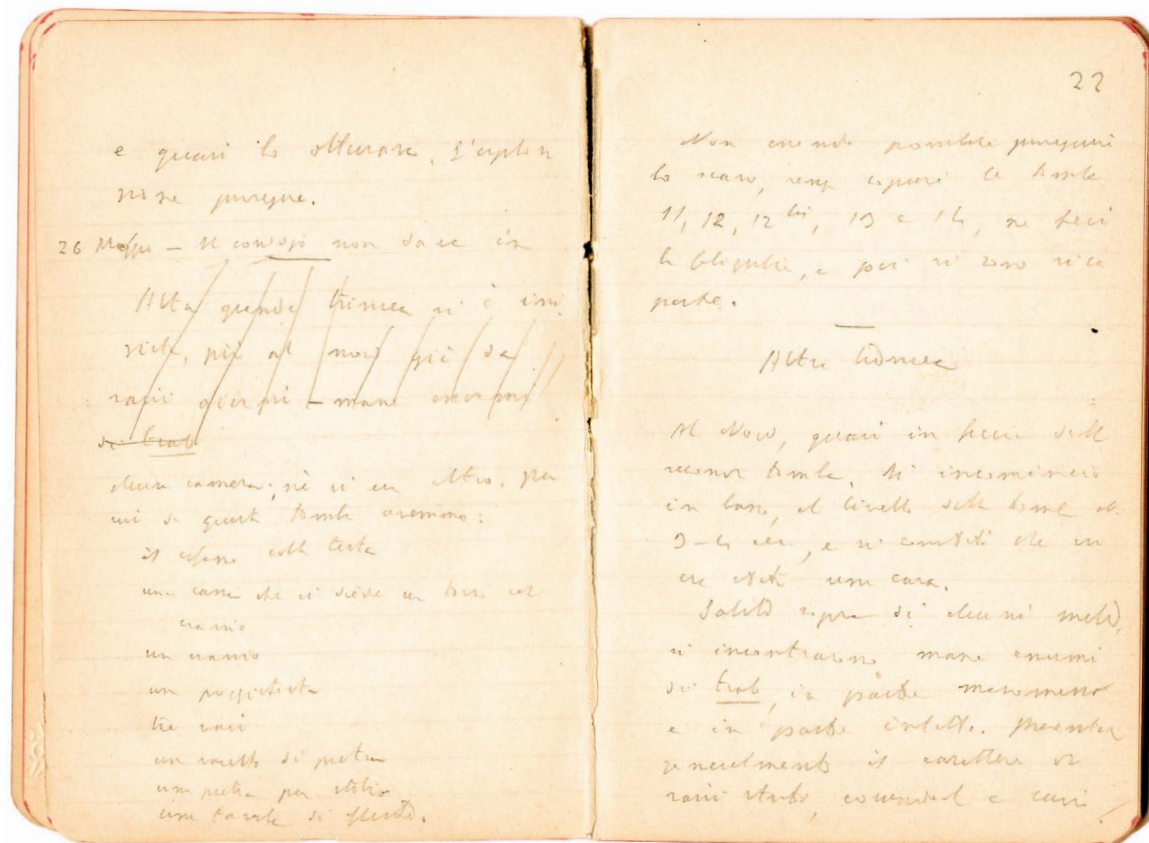 e quasi lo otturava. L'esplora
zione prosegue.
26 Maggio – Il corridojo non dava in
Altra grande trincea si è ini
ziata, più al nord già da
varii giorni – mane enormi
di trab
alcuna camera; nè vi era altro. Per
cui di questa tomba avemmo:
il cofano colla testa
una cassa che si diede un torso col
cranio
un cranio
un poggiatesta
tre vasi
un vasetto di pietra
una pietra per
una tavola di
22
Non essendo possibile proseguire
lo scavo, le tombe
11, 12, 12 bis, 13 e 14, ne feci
la fotografia, e poi si sono rico
perte.
Altra trincea
Al Nord, quasi in faccia della
seconda tomba, si incominciò
in basso, al livello delle tombe
e si constatò che vi
era stata una cava.
Salito sopra di alcuni metri,
si incontrarono mane enormi
di trab, in parte manomesse
e in parte intatte. Presenta
generalmente il carattere di
varii strati, e cavi